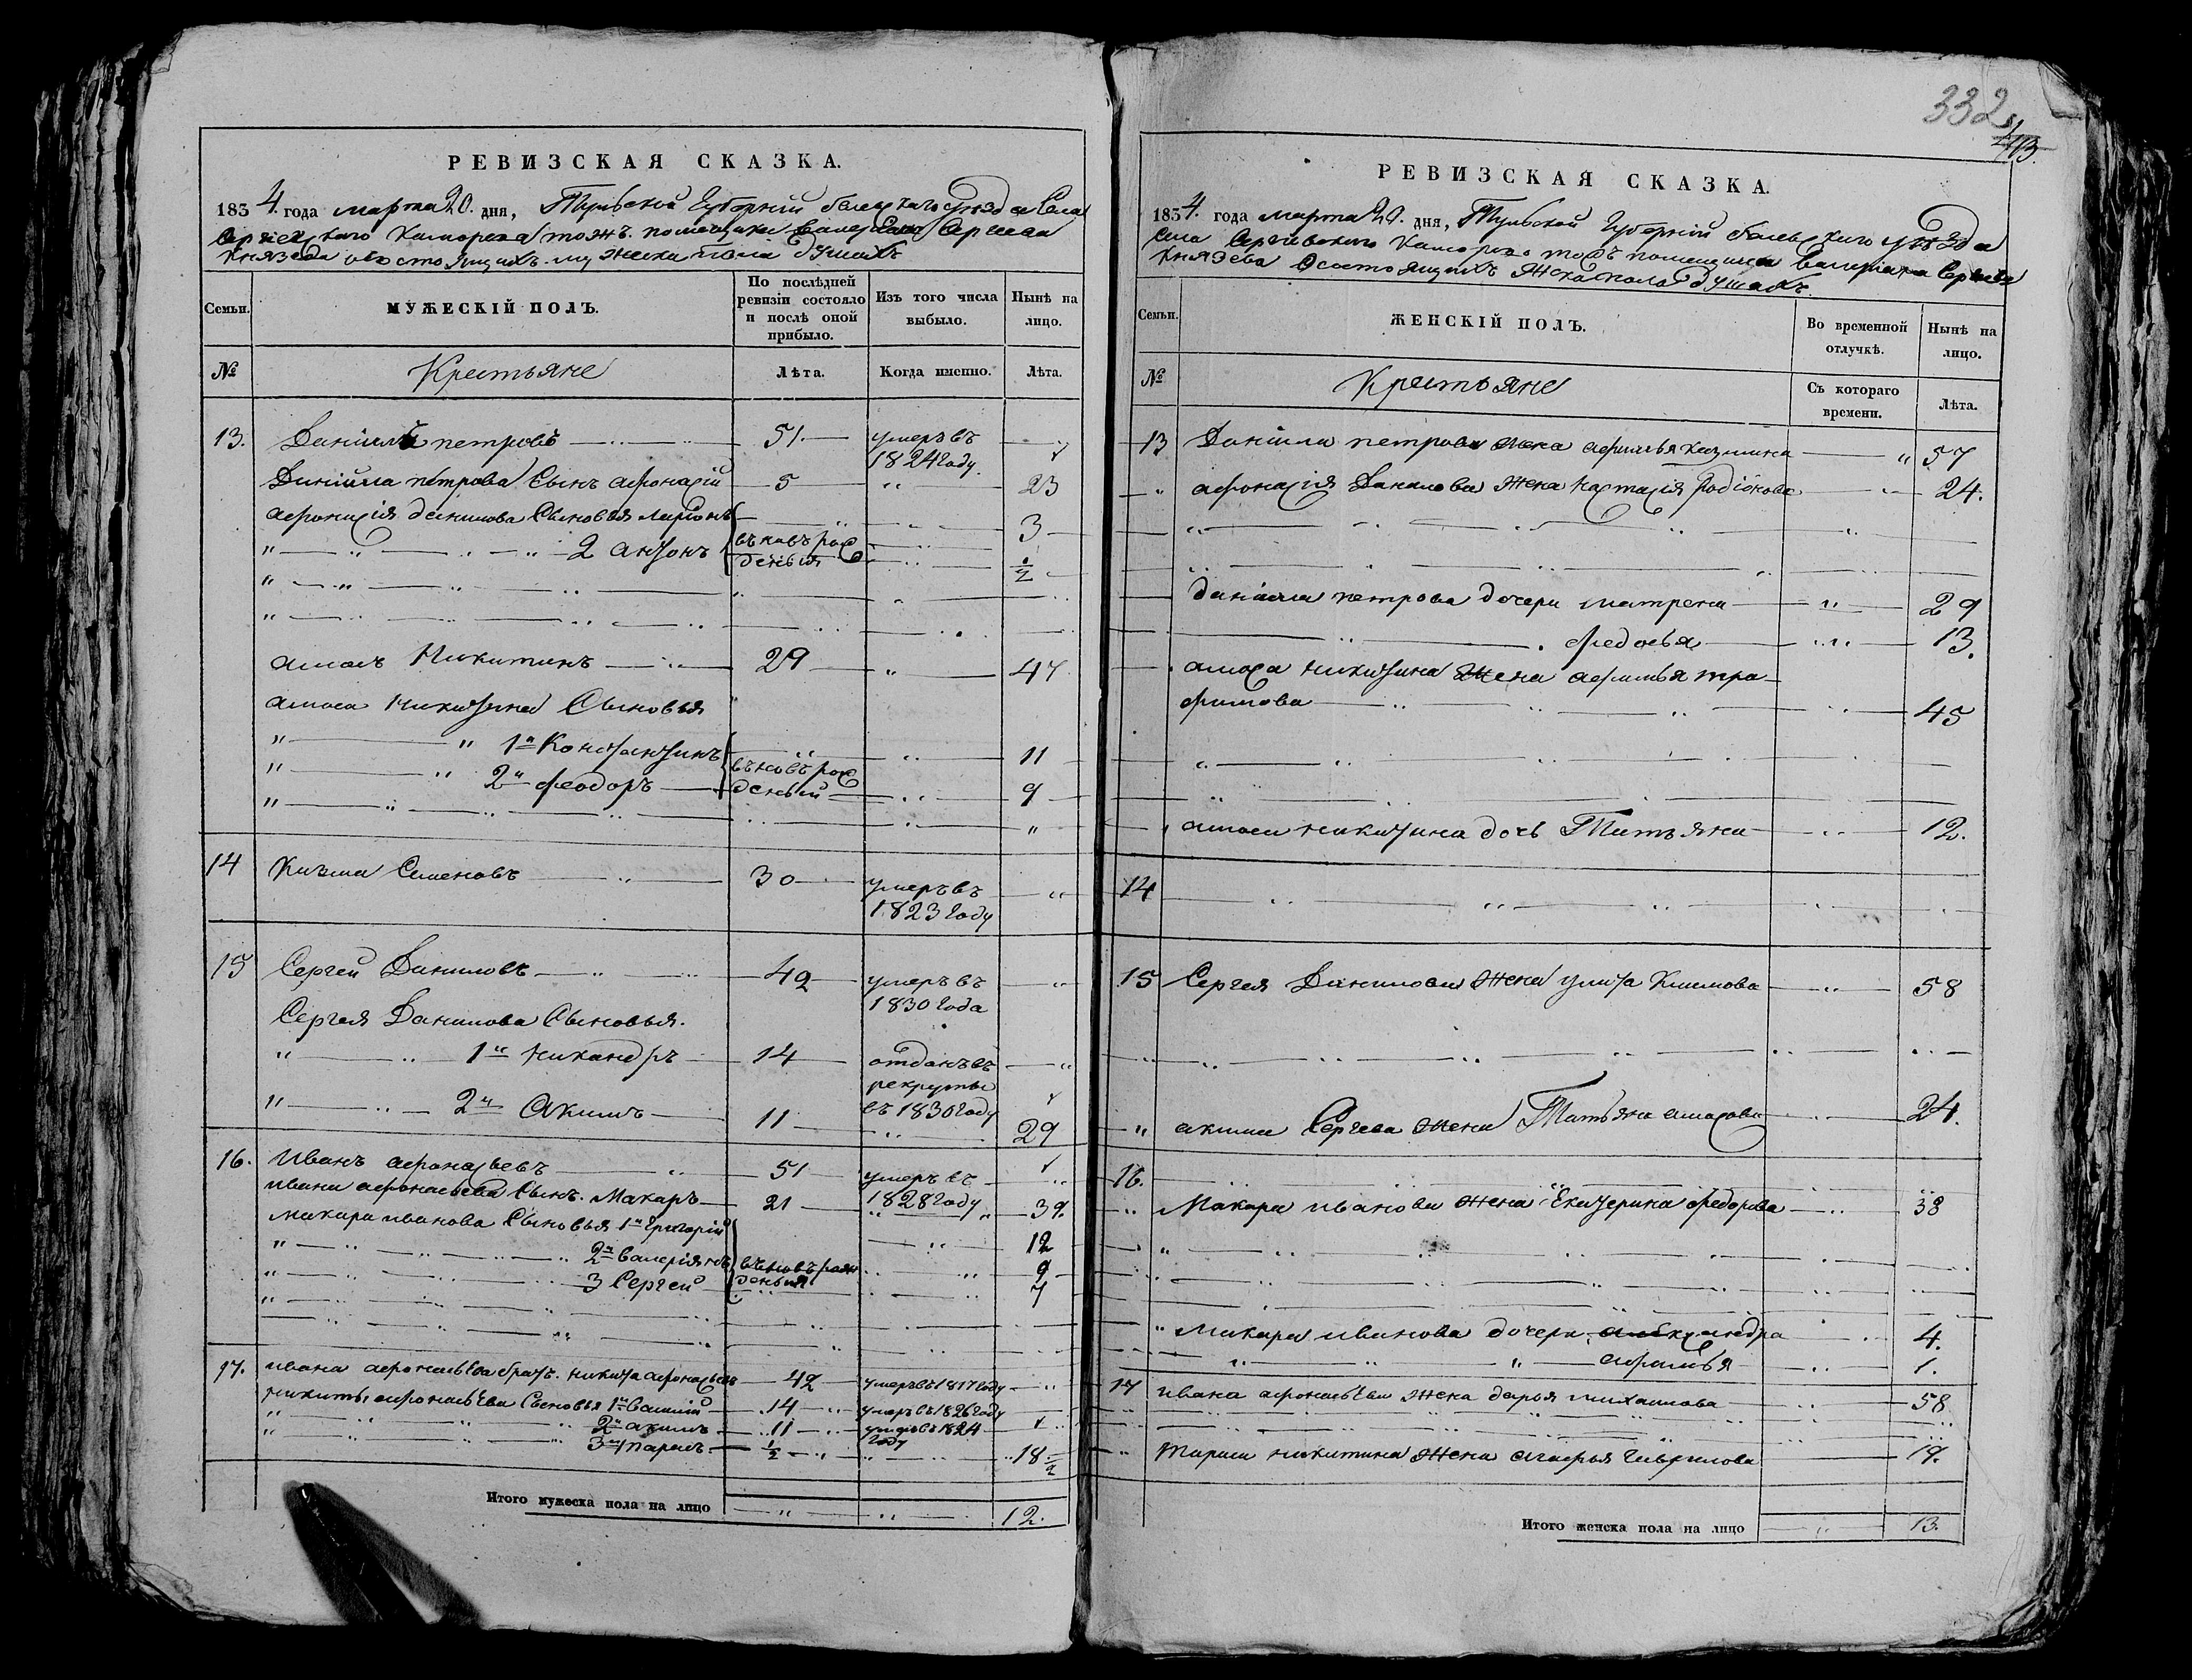 332
РЕВИЗСКАЯ СКАЗКА.
1834 года марта 20. дня, Тульской Губерніи уѣзда Села
Сергіевскаго тожъ. помещика Сергеева
Князева о состоящихъ мужеска пола душахъ
Семьи. МУЖЕСКІЙ ПОЛЪ. По послѣдней ревизіи состояло и послѣ оной прибыло. Изъ того числа выбыло. Нынѣ на лицо.
№ Крестьяне Лѣта. Когда именно. Лѣта.
13. Данійла петровъ 51. умеръ въ 1824 году
Данійла петрова Сынъ афонасій 5 23
афонасія данилова Сыновья ларіонъ 3
2 антонъ въновь рожденыя 1/2
амосъ Никитинъ 29 47
амоса Никитина Сыновья
1й Константинъ 11
2й феодоръ въновь рожденый 9
14 Кизма Семеновъ 30 умеръ въ 1823 году
15 Сергей Даниловъ 42 умеръ въ 1830 года
Сергея Данилова Сыновья.
1й Никандръ 14 отданъ въ рекруты въ 1830 году
2й Акимъ 11 29
16. Иванъ афонасьевъ 51 умеръ въ 1828 году
ивана афонасьева Сынъ. Макаръ 21 39.
макара иванова Сыновья 1й григорій 12
2й валеріянъ въновь рожденыя 9
3 Сергей 7
17. ивана афонасьева братъ. никита афонасьевъ 42 умеръ въ 1817 году
никиты афонасьева Сыновья 1й василій 14 умеръ въ 1826 году
2й акимъ 11 умеръ въ 1824 году
3й тарасъ 1/2 18 1/2
Итого мужеска пола на лицо 12.
РЕВИЗСКАЯ СКАЗКА.
1834. года марта 20. дня, Тульской Губерніи уѣзда
Села Сергіевскаго тожъ помещика валеріяна Сергеева
Князева О состоящихъ женска пола душахъ.
Семьи. ЖЕНСКІЙ ПОЛЪ. Во временной отлучкѣ. Нынѣ на лицо.
№ Крестьяне Съ котораго времени. Лѣта.
13 Данійла петрова жена афимья казмина 57
афонасія Данилова жена настасія Родіонова 24.
данійла петрова дочери матрена 29
федосья 13.
амоса никитина жена афимья тра-
фимова 45
амоса никитина дочь Татьяна 12.
14
15 Сергея Данилова жена улита Климова 58
акима Сергева жена Татьяна амосова 24.
16.
Макара иванова жена Екатерина федорова 38
Макара иванова дочери, александра 4.
афимья 1.
17 ивана афонасьева жена дарья михаилова 58
Тараса никитина жена агафья гаврилова 19.
Итого женска пола на лицо 13.